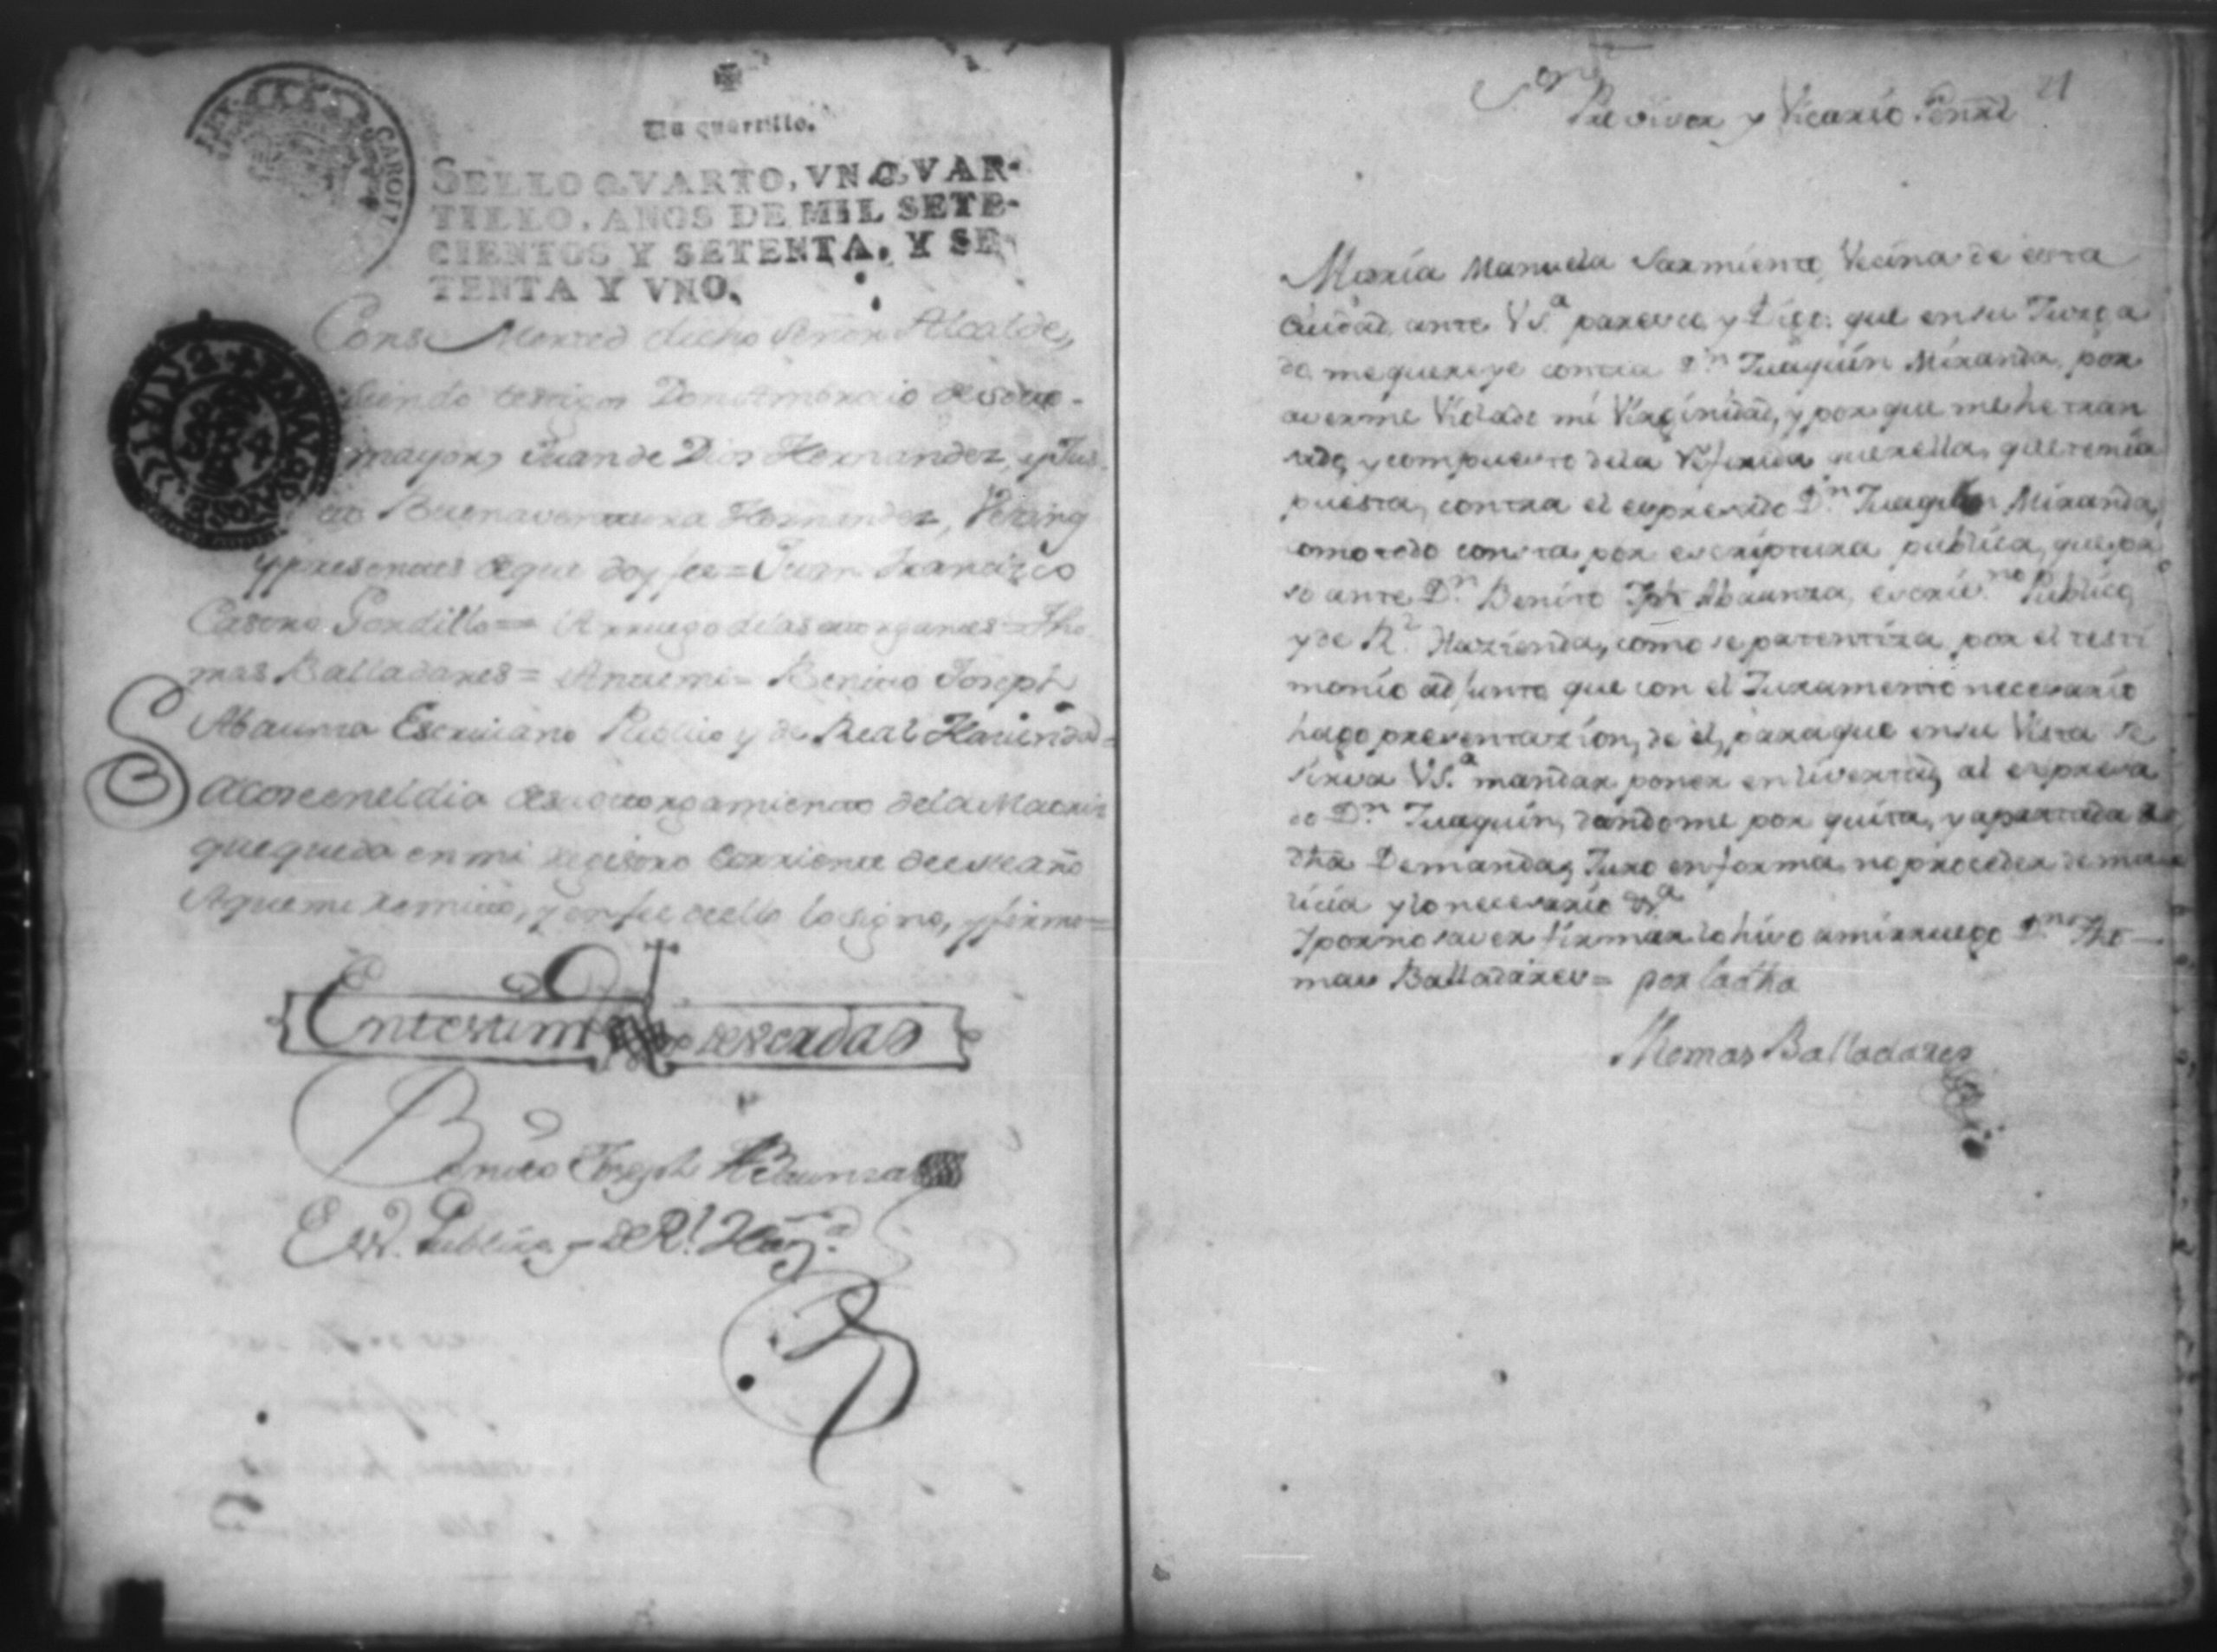 Un quartillo.
SELLO QVARTO, VN QVAR-
TILLO, AÑOS DE MIL SETE-
CIENTOS Y SETENTA, Y SE
TENTA Y VNO.
CAROLI
Merced dicho Señor Alcalde,
siendo testigos Don Ambrocio de soto-
mayor, Juan de Dios Hernandez, y Jus
Buenaventura Hernandez, Vezinos
y presentes de que doy fee = Juan Francisco
Castro Gordillo = A rruego de las otorgantes = Tho
mas Balladares = Ante mi = Benito Joseph
Abaunza Escriuano Publico y de Real Hazienda =
Sacose en el dia de su otorgamiento de la Matriz
que queda en mi registro corriente de este año
A que me remito, y en fee de ello lo signo, y firmo =
En testim de verdad
Benito Joseph Abaunza
Ess. Publico y de Rl. Haz.da
21
Sor
Provisor y Vicario Genrl
Maria Manuela Sarmiento Vecina de esta
Ciudad, ante VSa paresco, y Digo: que en su Jusga
do me quereye contra Dn Juaquin Miranda, por
averme Violado mi Virginidad, y por que me he tran
sado, y compuesto de la referida querella, que tenia
puesta, contra el expresado Dn Juaquin Miranda,
como todo consta por escriptura publica, que pa
so ante Dn Benito Jph Abaunza, escriv.no Publico,
y de Rl Hazienda, como se patentiza por el testi
monio adjunto que con el Juramento necesario
hago presentazion, de el, para que en su Vista se
sirva VSa mandar poner en livertad, al expresa
do Dn Juaquin, dandome por quita, y apartada de
dha Demanda, Juro en forma, no proceder de ma
licia y lo necesario &a
Y por no saver firmar lo hiso a mi rruego Dn Tho-
mas Balladares = por la dha
Thomas Balladares